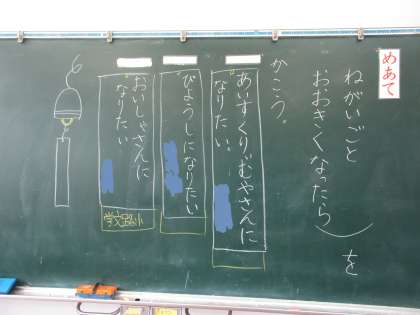 めあて
ねがいごと
おおきくなったら を
かこう。
あいすくりぃむやさんに
なりたい。
びようしになりたい
おいしゃさんに
なりたい